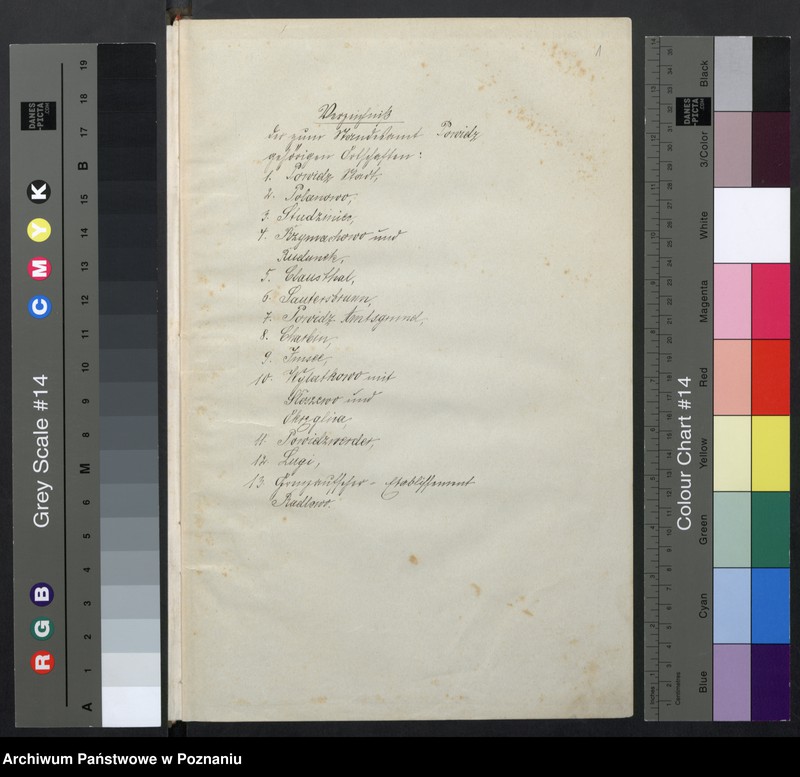 1
Verzeichniß
der zum Standesamt Powidz
gehörigen Ortschaften:
1. Powidz Stadt,
2. Polanowo,
3. Studzniec,
4. Przymachowo und
5. Clausthal,
6. Lautersbrunn,
7. Powidz Amtsgrund,
8. Charben,
9.
10. Wylatkowo mit
und
11. Powidzwerder,
12. Lugi,
13. Etablissement
Radlowo.
DANES
-PICTA
.COM
Grey Scale #14
A 1 2 3 4 5 6 M 8 9 10 11 12 13 14 15 B 17 18 19
R G B
C M Y K
DANES
-PICTA
.COM
Colour Chart #14
Black
3/Color
White
Magenta
Red
Yellow
Green
Cyan
Blue
Inches
Centimetres
Archiwum Państwowe w Poznaniu